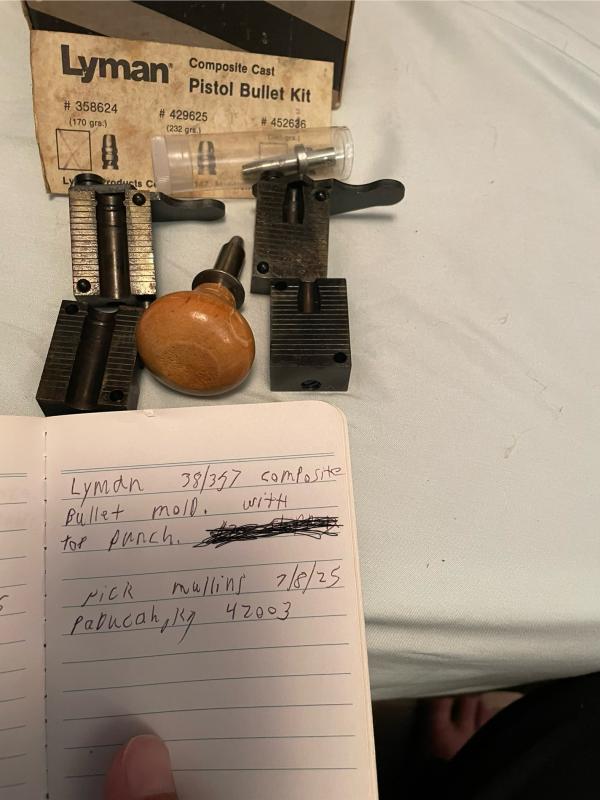 Lyman® Composite Cast
Pistol Bullet Kit
# 358624 # 429625 # 452626
(170 grs.) (232 grs.)
Products
Lyman 38/357 composite
Bullet mold. with
top punch.
Rick mullins 7/8/25
Paducah, Ky 42003